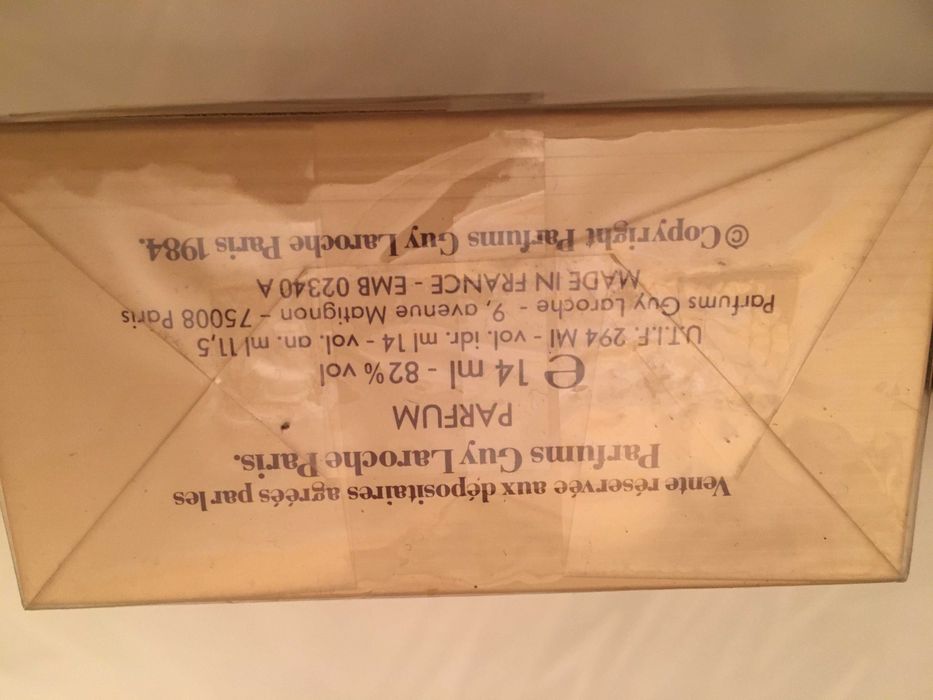 Vente réservée aux dépositaires agréés par les
Parfums Guy Laroche Paris.
PARFUM
℮ 14 ml - 82% vol
U.T.I.F. 294 MI - vol. idr. ml 14 - vol. an. ml 11,5
Parfums Guy Laroche - 9, avenue Matignon - 75008 Paris
MADE IN FRANCE - EMB 02340 A
© Copyright Parfums Guy Laroche Paris 1984.